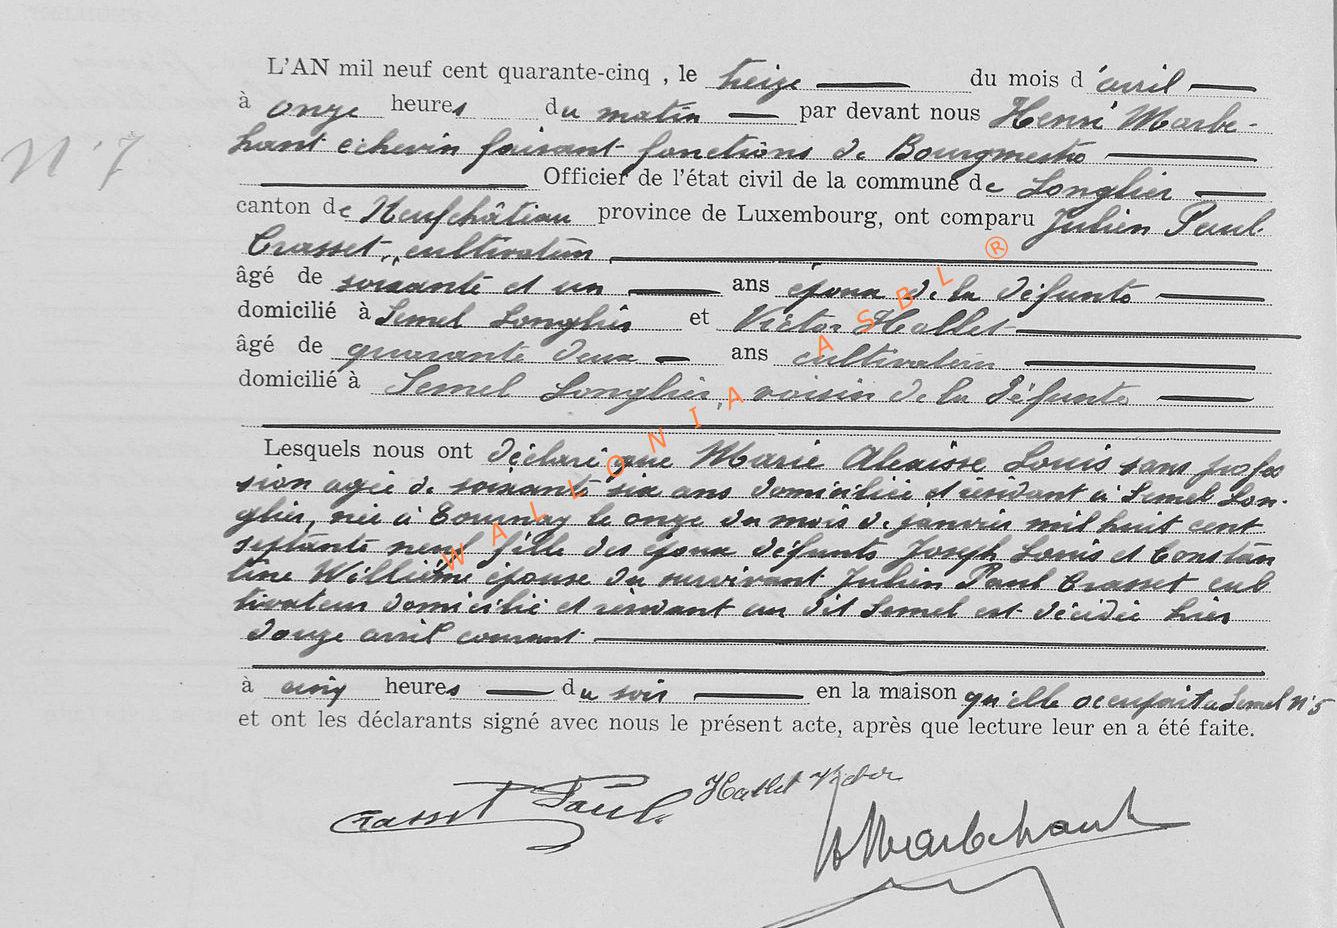 L'AN mil neuf cent quarante-cinq , le treize du mois d'avril
à onze heures du matin par devant nous Henri Marbe-
N° 7
hant échevin faisant fonctions de Bourgmestre
Officier de l'état civil de la commune de Longlier
canton de Neufchâteau province de Luxembourg, ont comparu Julien Paul
Crasset, cultivateur
âgé de soixante et un ans époux de la défunte
domicilié à Semel Longlier et Victor Hallet
âgé de quarante deux ans cultivateur
domicilié à Semel Longlier, voisin de la défunte
Lesquels nous ont déclaré que Marie Alexisse Louis sans profes
sion agée de soixante six ans domiciliée et résidant à Semel Lon-
glier, née à Tournay le onze du mois de janvier mil huit cent
septante neuf fille des époux défunts Joseph Louis et Constan
tine Willième épouse du survivant Julien Paul Crasset cul
tivateur domicilié et résidant au dit Semel est décédée hier
douze avril courant
à cinq heures du soir en la maison qu'elle occupait à Semel N° 5
et ont les déclarants signé avec nous le présent acte, après que lecture leur en a été faite.
Crasset Paul. Hallet Victor
H Marbehant
WALLONIA ASBL ®